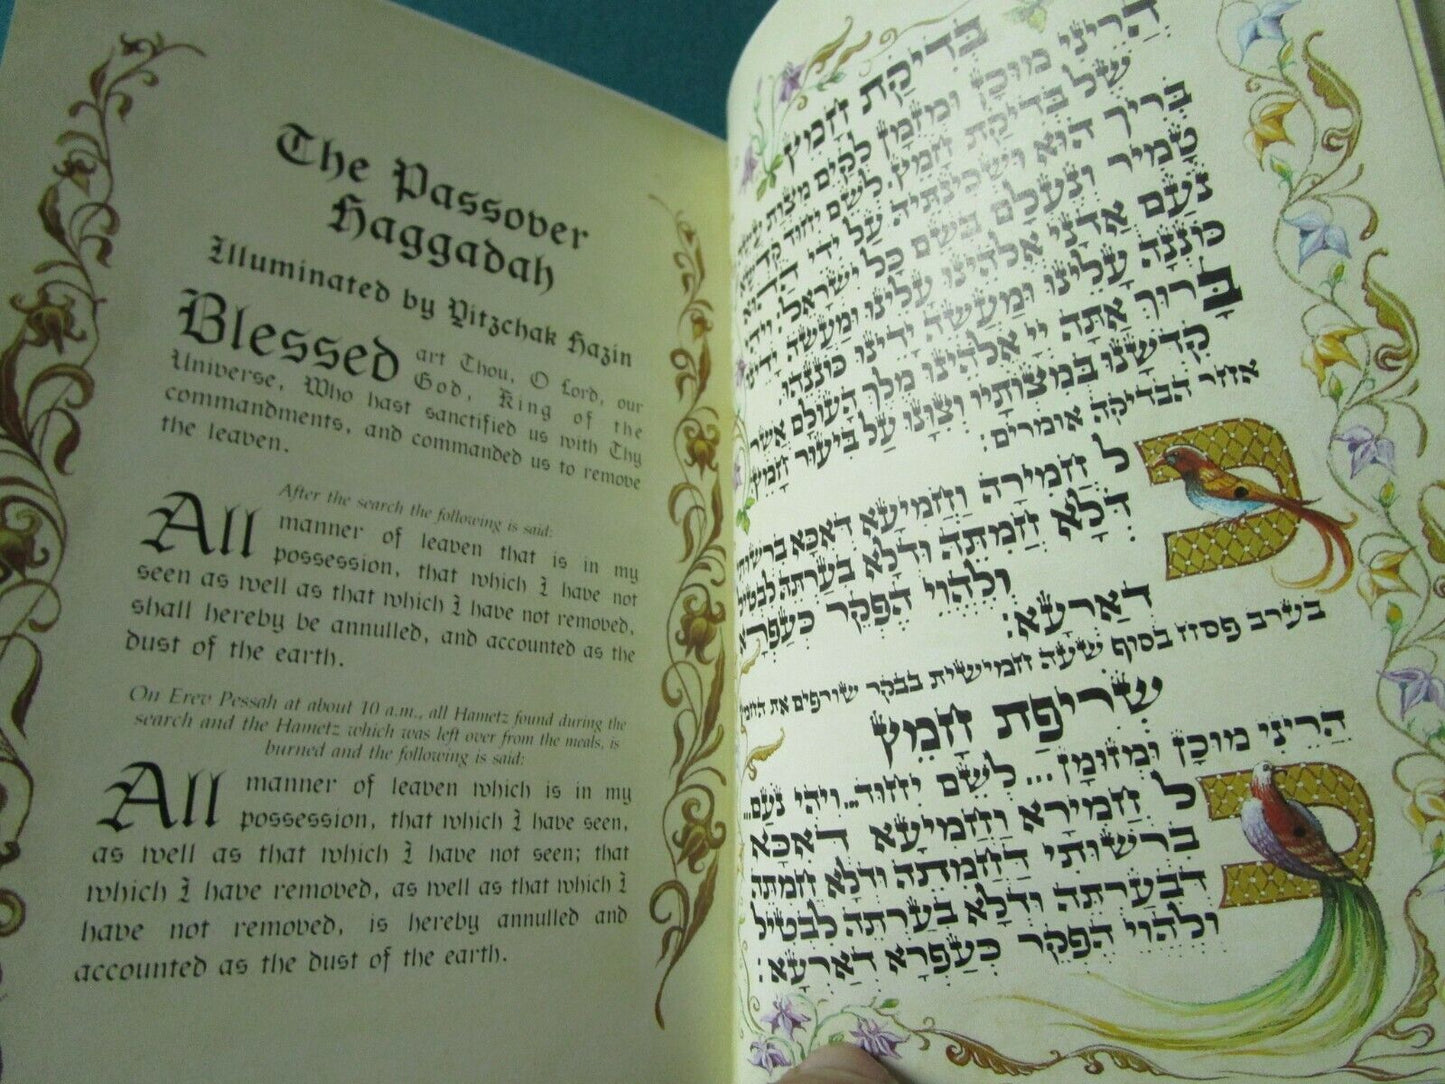 The Passover
Haggadah
Illuminated by Yitzchak Hazin
Blessed art Thou, O Lord, our
God, King of the
Universe, Who hast sanctified us with Thy
commandments, and commanded us to remove
the leaven.
After the search the following is said:
All manner of leaven that is in my
possession, that which I have not
seen as well as that which I have not removed,
shall hereby be annulled, and accounted as the
dust of the earth.
On Erev Pessah at about 10 a.m., all Hametz found during the
search and the Hametz which was left over from the meals, is
burned and the following is said:
All manner of leaven which is in my
possession, that which I have seen,
as well as that which I have not seen; that
which I have removed, as well as that which I
have not removed, is hereby annulled and
accounted as the dust of the earth.
בְּדִיקַת חָמֵץ
הֲרֵינִי מוּכָן וּמְזֻמָּן לְקַיֵּם מִצְוַת
שֶׁל בְּדִיקַת חָמֵץ. לְשֵׁם יִחוּד
בְּרִיךְ הוּא וּשְׁכִינְתֵּיהּ עַל יְדֵי הַהוּא
טָמִיר וְנֶעְלָם בְּשֵׁם כָּל יִשְׂרָאֵל: וִיהִי
נֹעַם אֲדֹנָי אֱלֹהֵינוּ עָלֵינוּ וּמַעֲשֵׂה יָדֵינוּ
כּוֹנְנָה עָלֵינוּ וּמַעֲשֵׂה יָדֵינוּ כּוֹנְנֵהוּ
בָּרוּךְ אַתָּה יְיָ אֱלֹהֵינוּ מֶלֶךְ הָעוֹלָם אֲשֶׁר
קִדְּשָׁנוּ בְּמִצְוֹתָיו וְצִוָּנוּ עַל בִּיעוּר חָמֵץ
אחר הבדיקה אומרים:
כָּל חֲמִירָה וַחֲמִיעָא דְאִכָּא
דְּלָא חֲמִתֵּהּ וּדְלָא בְעַרְתֵּהּ לִבְטִיל
וְלֶהֱוֵי הֶפְקֵר כְּעַפְרָא
דְאַרְעָא:
בערב פסח בסוף שעה חמישית בבקר שורפים את
שְׂרִיפַת חָמֵץ
הֲרֵינִי מוּכָן וּמְזוּמָן... לְשֵׁם יִחוּד...וִיהִי נֹעַם...
כָּל חֲמִירָא וַחֲמִיעָא דְאִכָּא
בִרְשׁוּתִי דַּחֲמִתֵּהּ וּדְלָא חֲמִתֵּהּ
דְּבַעַרְתֵּהּ וּדְלָא בַעַרְתֵּהּ לִבְטִיל
וְלֶהֱוֵי הֶפְקֵר כְּעַפְרָא דְאַרְעָא: